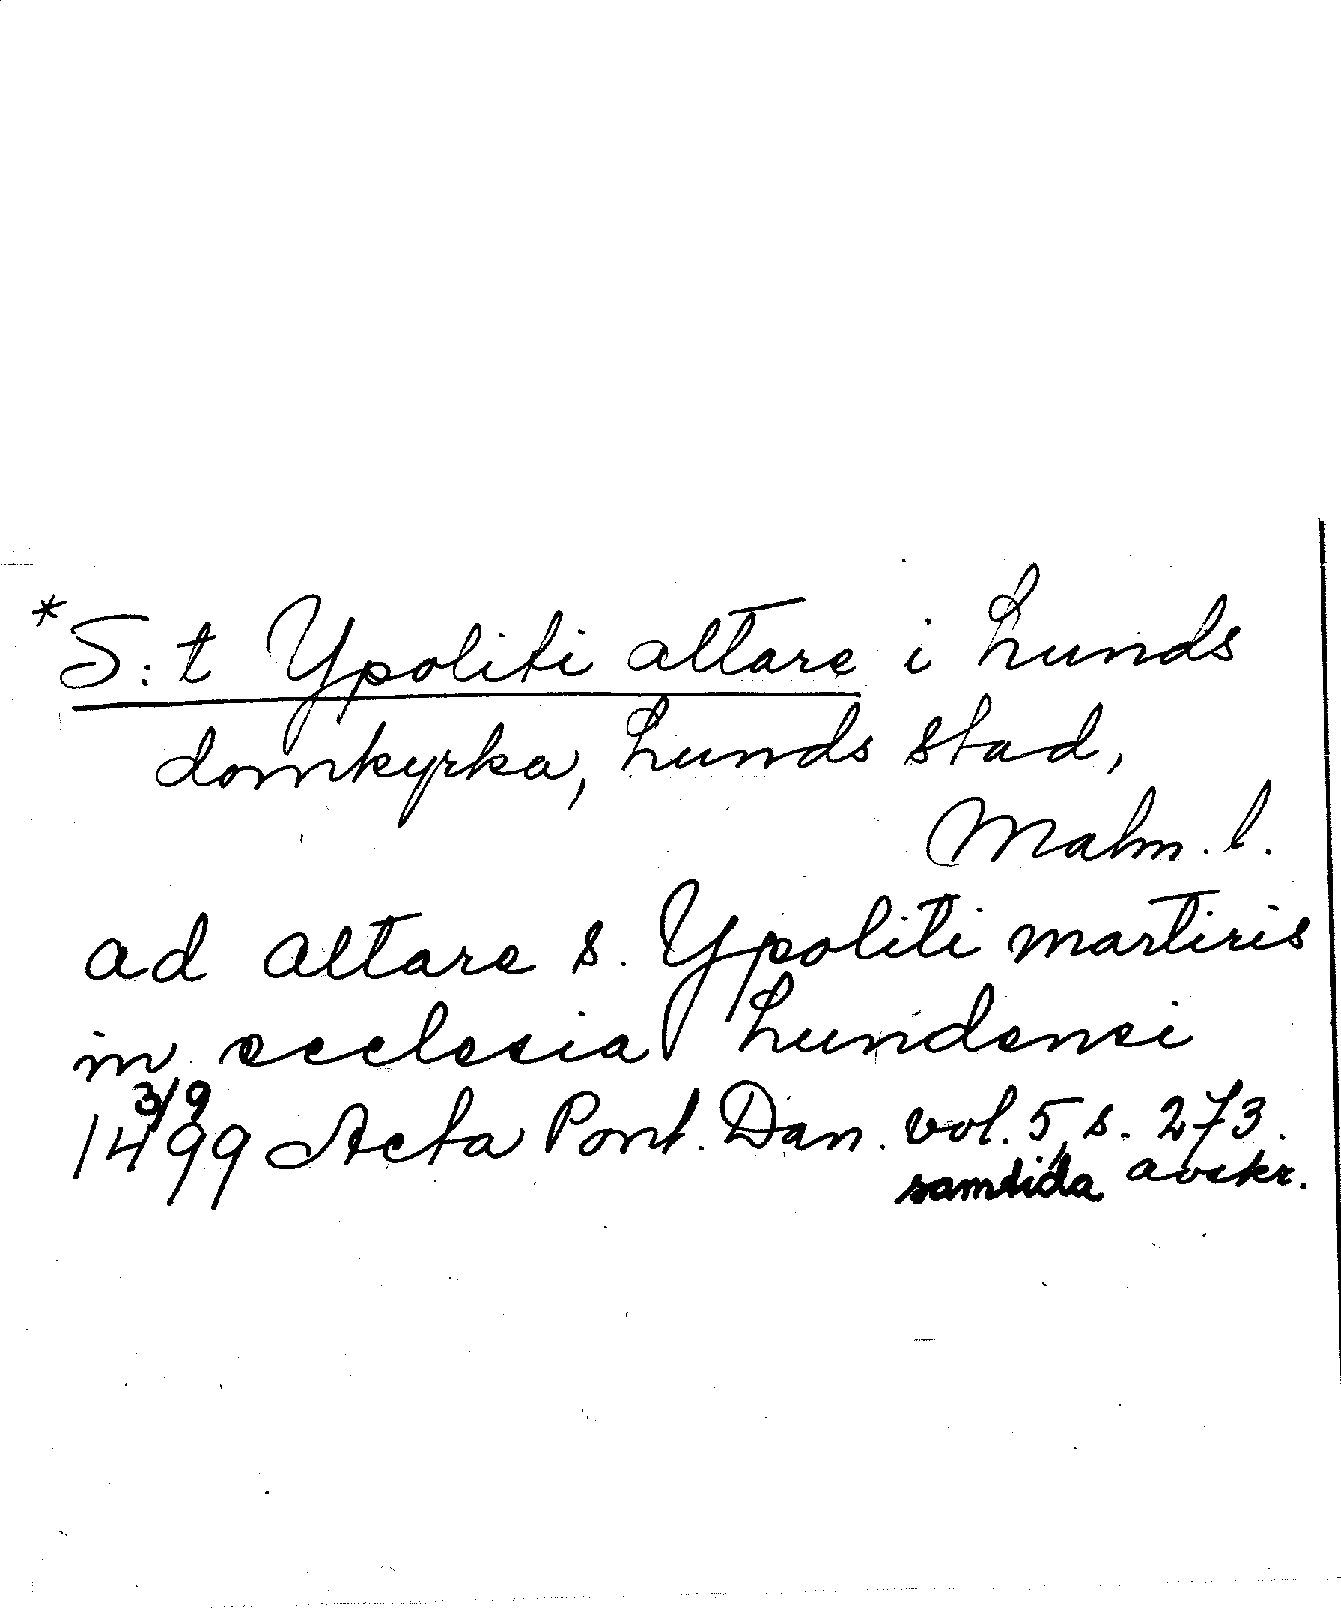 *S:t Ypoliti altare i Lunds
domkyrka, Lunds stad,
Malm. l.
ad altare s. Ypoliti martiris
in ecclesia Lundensi
3/9
1499 Acta Pont. Dan. vol. 5, s. 273.
samtida avskr.